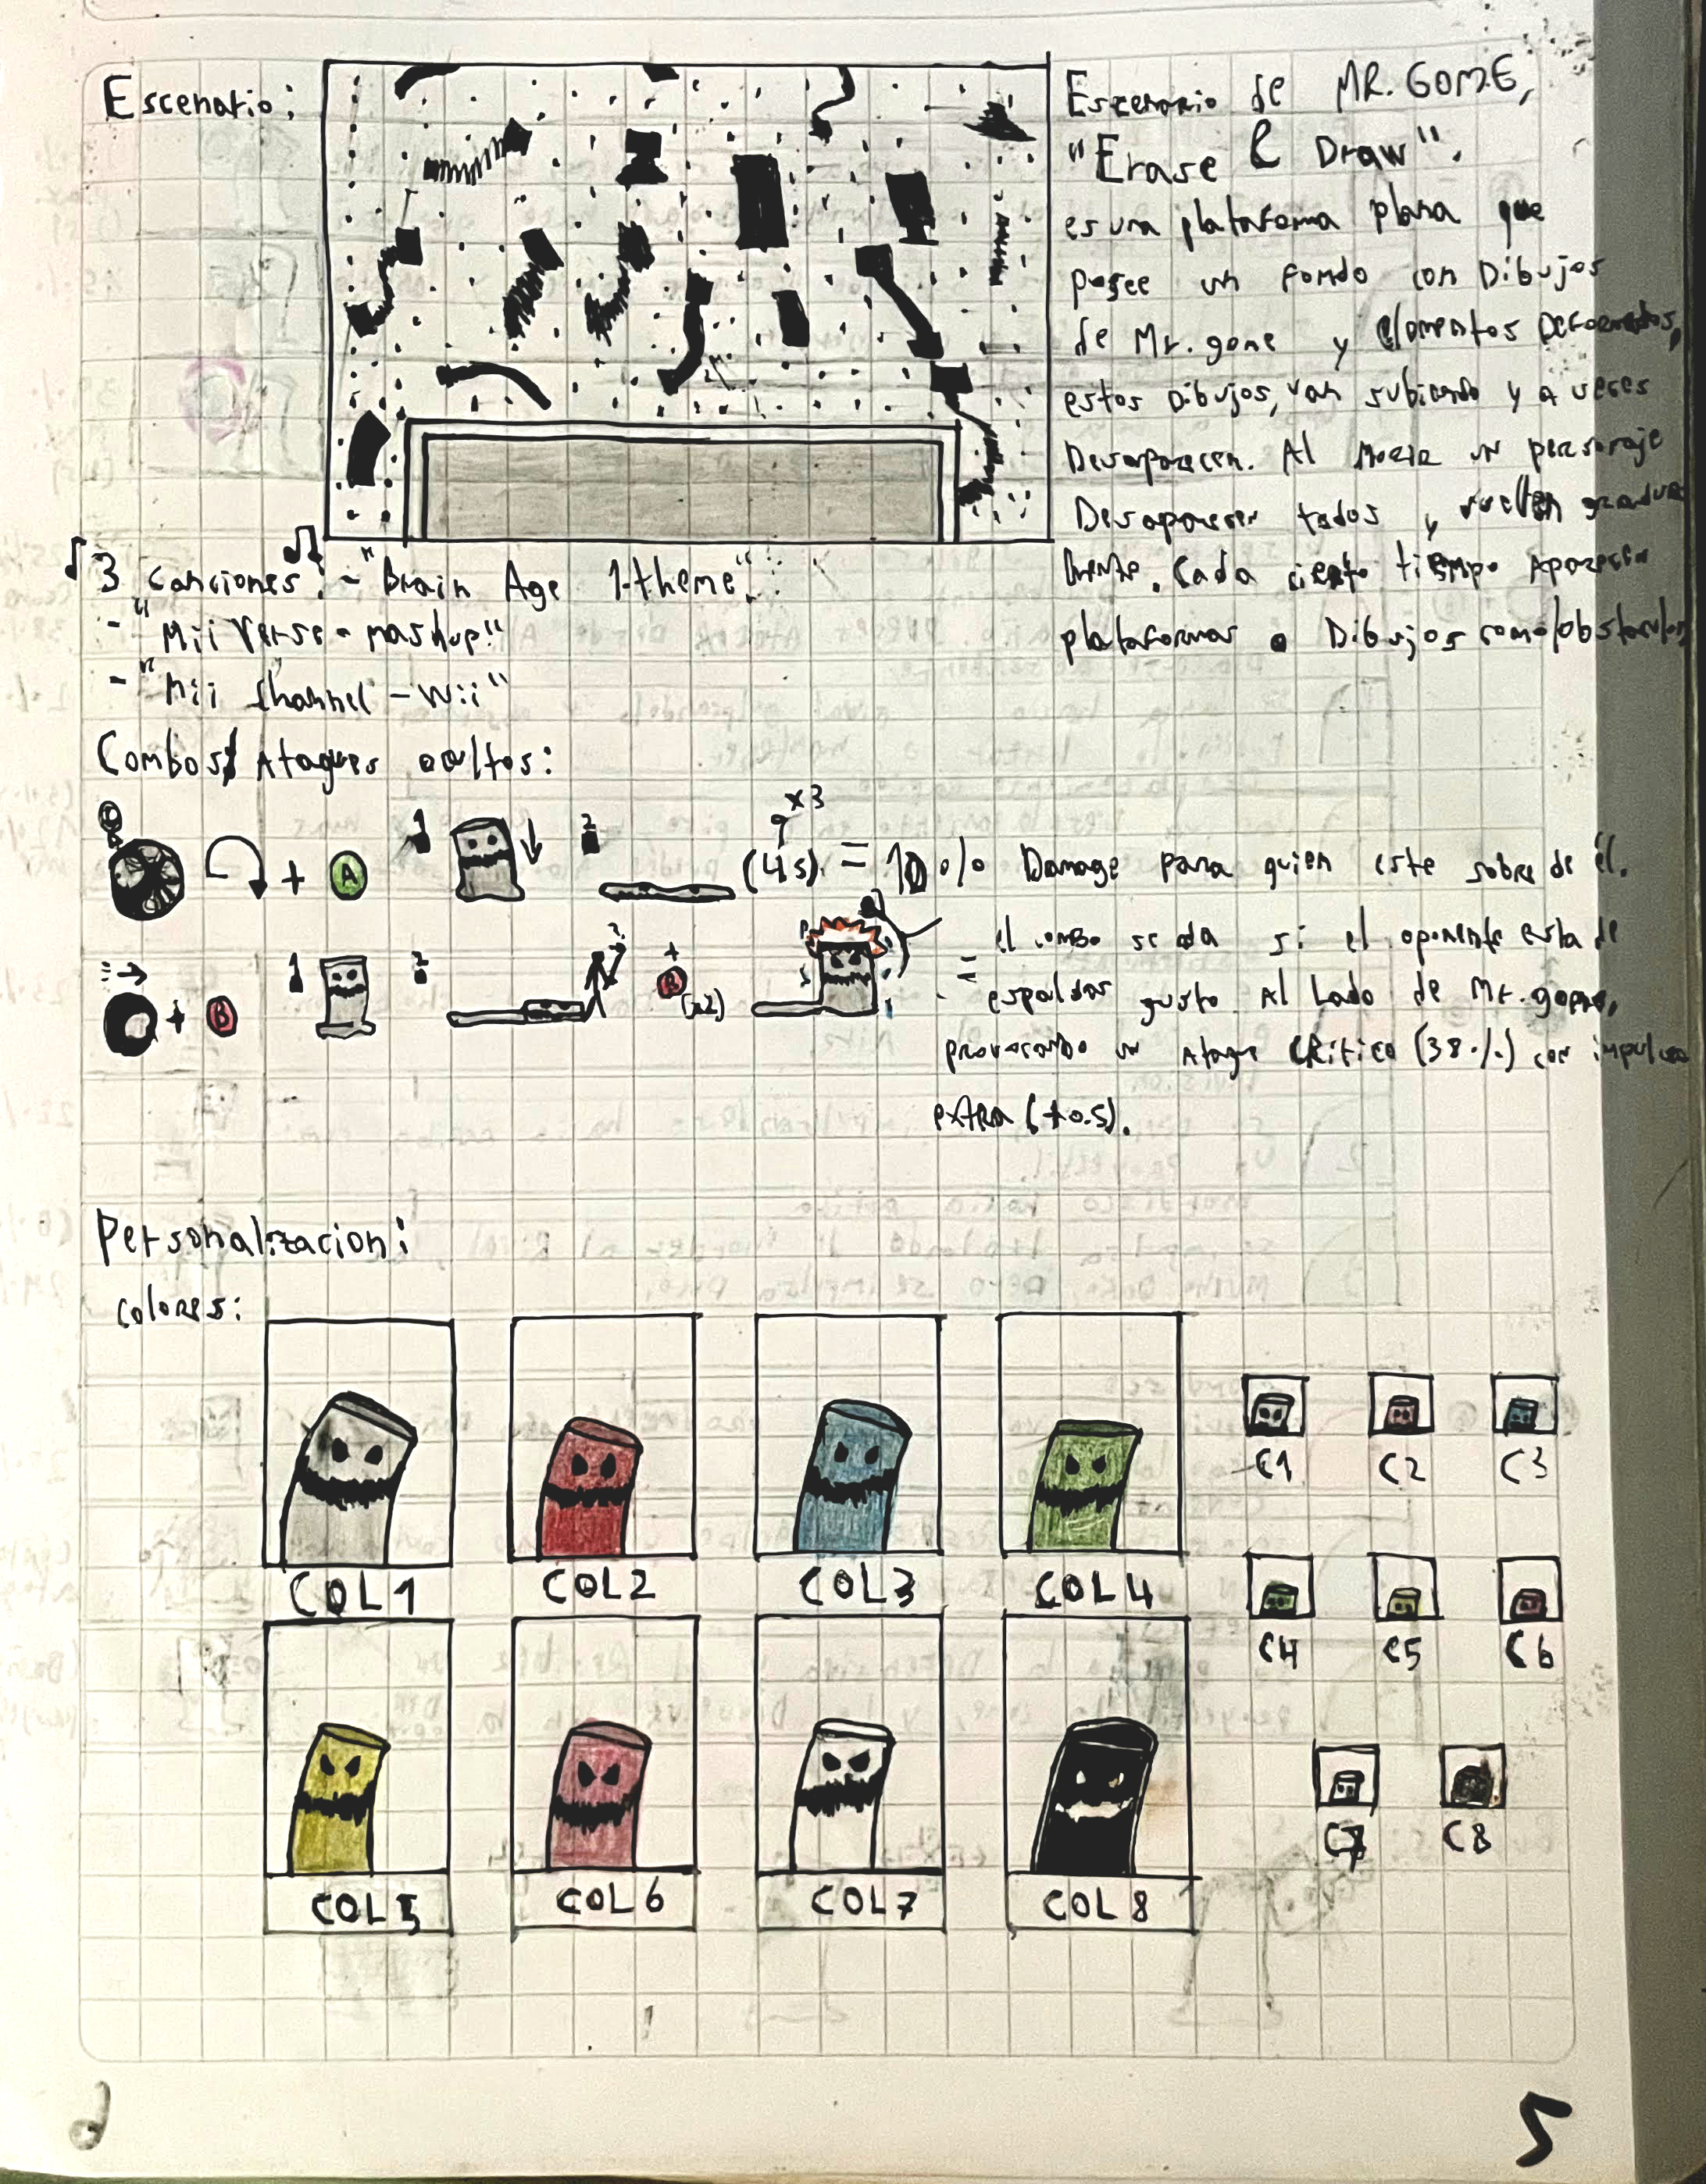 Escenario:
Escenario de MR. GOME,
"Erase & Draw".
es una plataforma plana que
posee un fondo con Dibujos
de Mr. gome y elementos Deformados,
estos Dibujos, van subiendo y a veces
Desaparecen. Al morir un personaje
Desaparecen todos y vuelven gradual
mente. Cada cierto tiempo Aparecen
plataformas o Dibujos como obstaculos
3 canciones: - "Brain Age 1-theme".
- "Mii Verse - mashup"
- "Mii Channel - Wii"
Combos/ Ataques ocultos:
+ A 1 2 (4s) x3 = 10% Damage para quien este sobre de él.
+ B 1 2 + B (x2) = el combo se da si el oponente esta de
espaldas gusto Al Lado de Mr. gome,
provocando un Ataque CRitico (38%) con impulso
extra (+0.5).
Personalizacion:
colores:
COL1 COL2 COL3 COL4
C1 C2 C3
C4 C5 C6
COL5 COL6 COL7 COL8
C7 C8
5